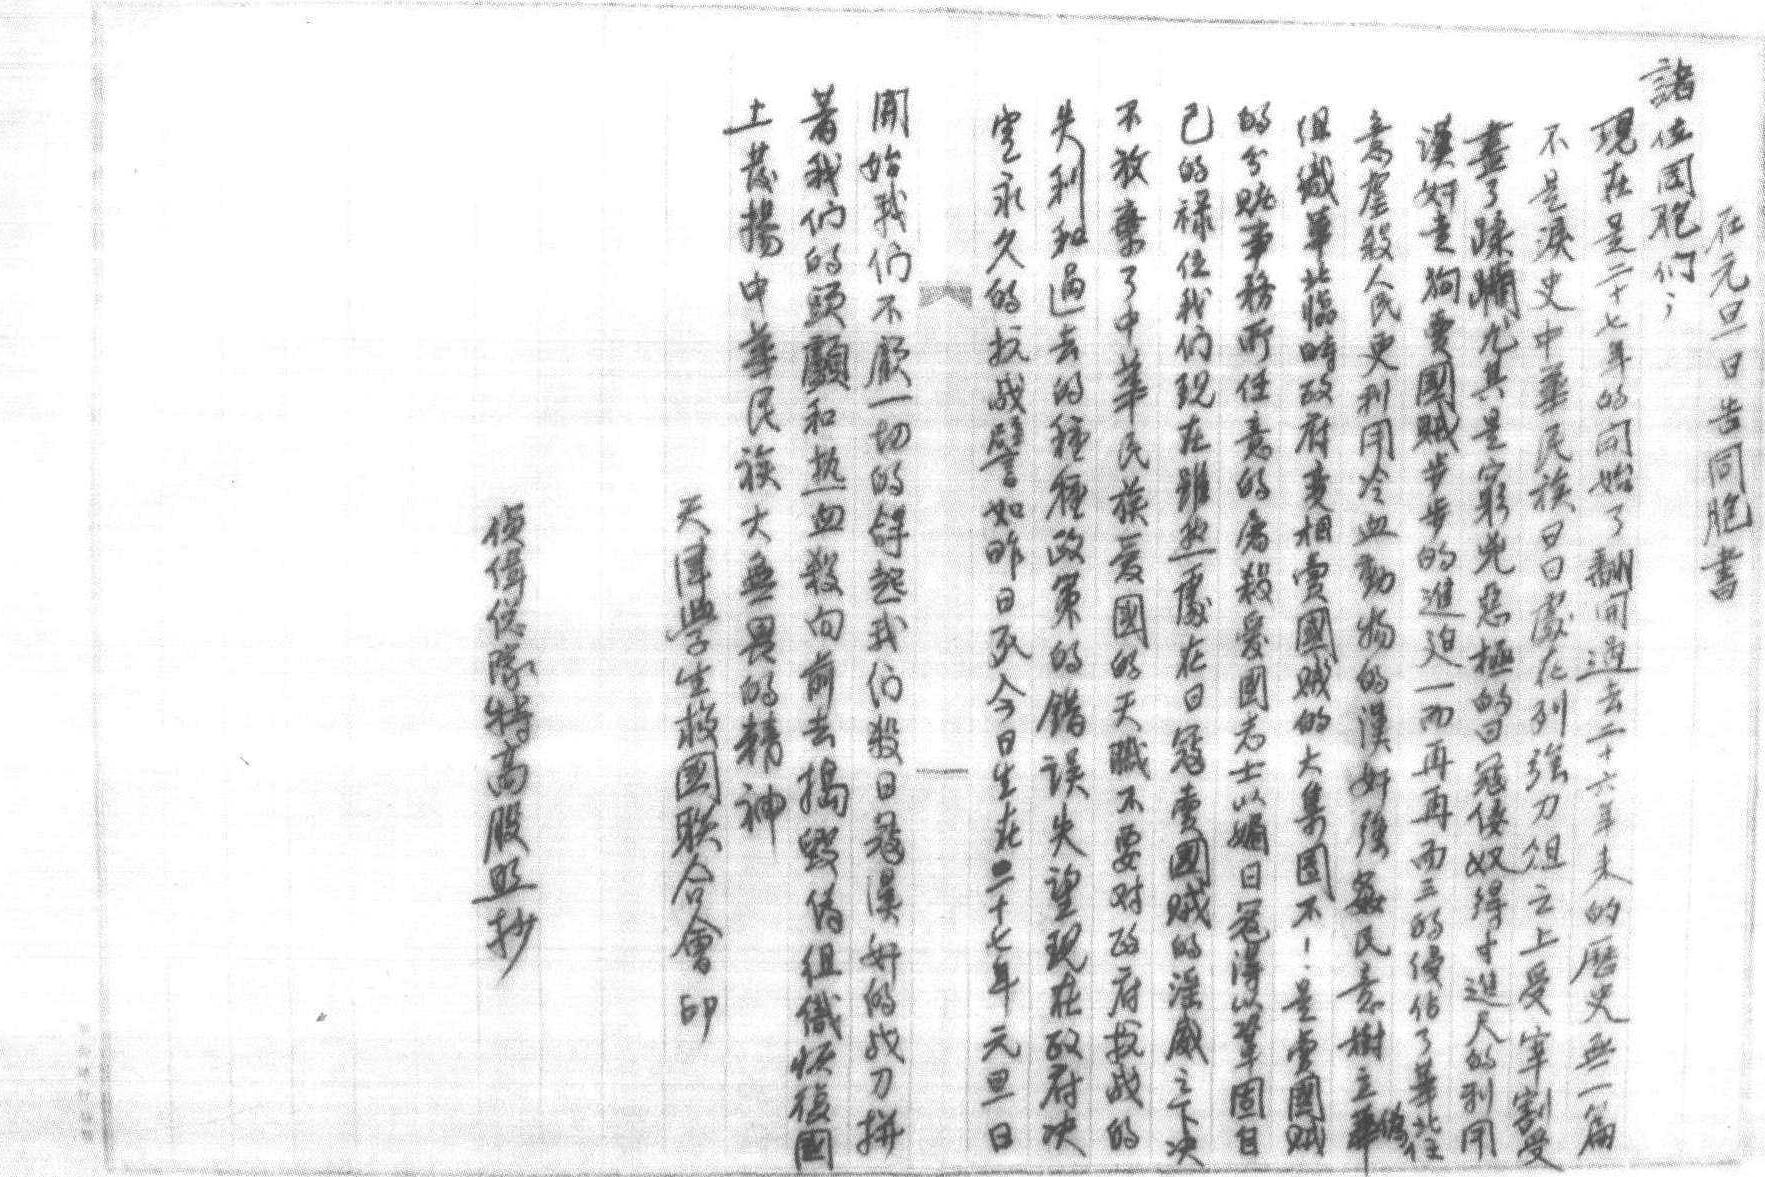 在元旦日告同胞書
諸位同胞们；
現在是二十七年的開始了翻開過去二十六年来的歷史無一篇
不是淚史中華民族日日處在列強刀俎之上受宰割受
盡了蹂躪尤其是窮兇惡極的日冦倭奴得寸進尺的利用
漢奸走狗賣國賊步步的進迫一而再再而三的侵佔了華北任
意虐殺人民更利用冷血動物的漢奸強姦民意樹立偽華
組織華北臨時政府変相賣國賊的大集團不！是賣國賊
的分賍事務所任意的屠殺愛國志士以媚日冦得以鞏固自
己的禄位我们現在雖然處在日冦賣國賊的淫威之下决
不放棄了中華民族愛國的天職不要对政府抗战的
失利和過去的種種政策的錯误失望現在政府决
定永久的抗战譬如昨日死今日生在二十七年元旦日
開始我们不顧一切的舉起我们殺日冦漢奸的战刀拼
着我们的頭顱和热血殺向前去搗毁偽组織恢復國
土發揚中華民族大無畏的精神
天津學生救國联合會印
偵緝隊特高股照抄